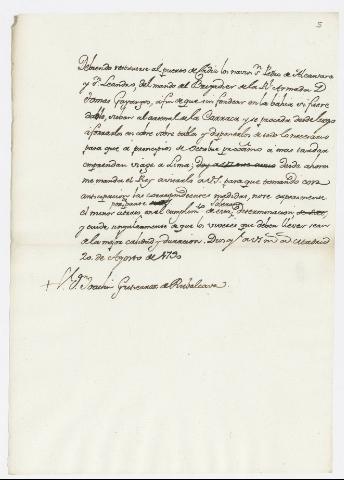 5
Debiendo restituirse al puerto de Cadiz los navios Sn. Pedro de Alcantara
y Sn. Leandro, del mando del Brigadier de la Rl. Armada Dn.
Tomas Gayangos, a fin de que sin fondear en la bahia si fuere
dable, suban al arsenal de la Carraca y se proceda desde luego
a forrarlos en cobre sobre tablas y disponerlos de todo lo necesario
para que a principios de Octubre proximo a mas tardar
emprendan viage a Lima; desde ahora
me manda el Rey avisarlo a V.S. para que tomando con
anticipacion las correspondientes medidas, no se experimente
por su parte
el menor atraso en el cumplimto. de esta determinacion
y cuide singularmente de que los viveres que deben llevar sean
de la mejor calidad y duracion. Dios gue. a V.S. ms. as. Madrid
20. de Agosto de 1790
+ Sr. Dn. Joachin Gutierrez de Rubalcava.